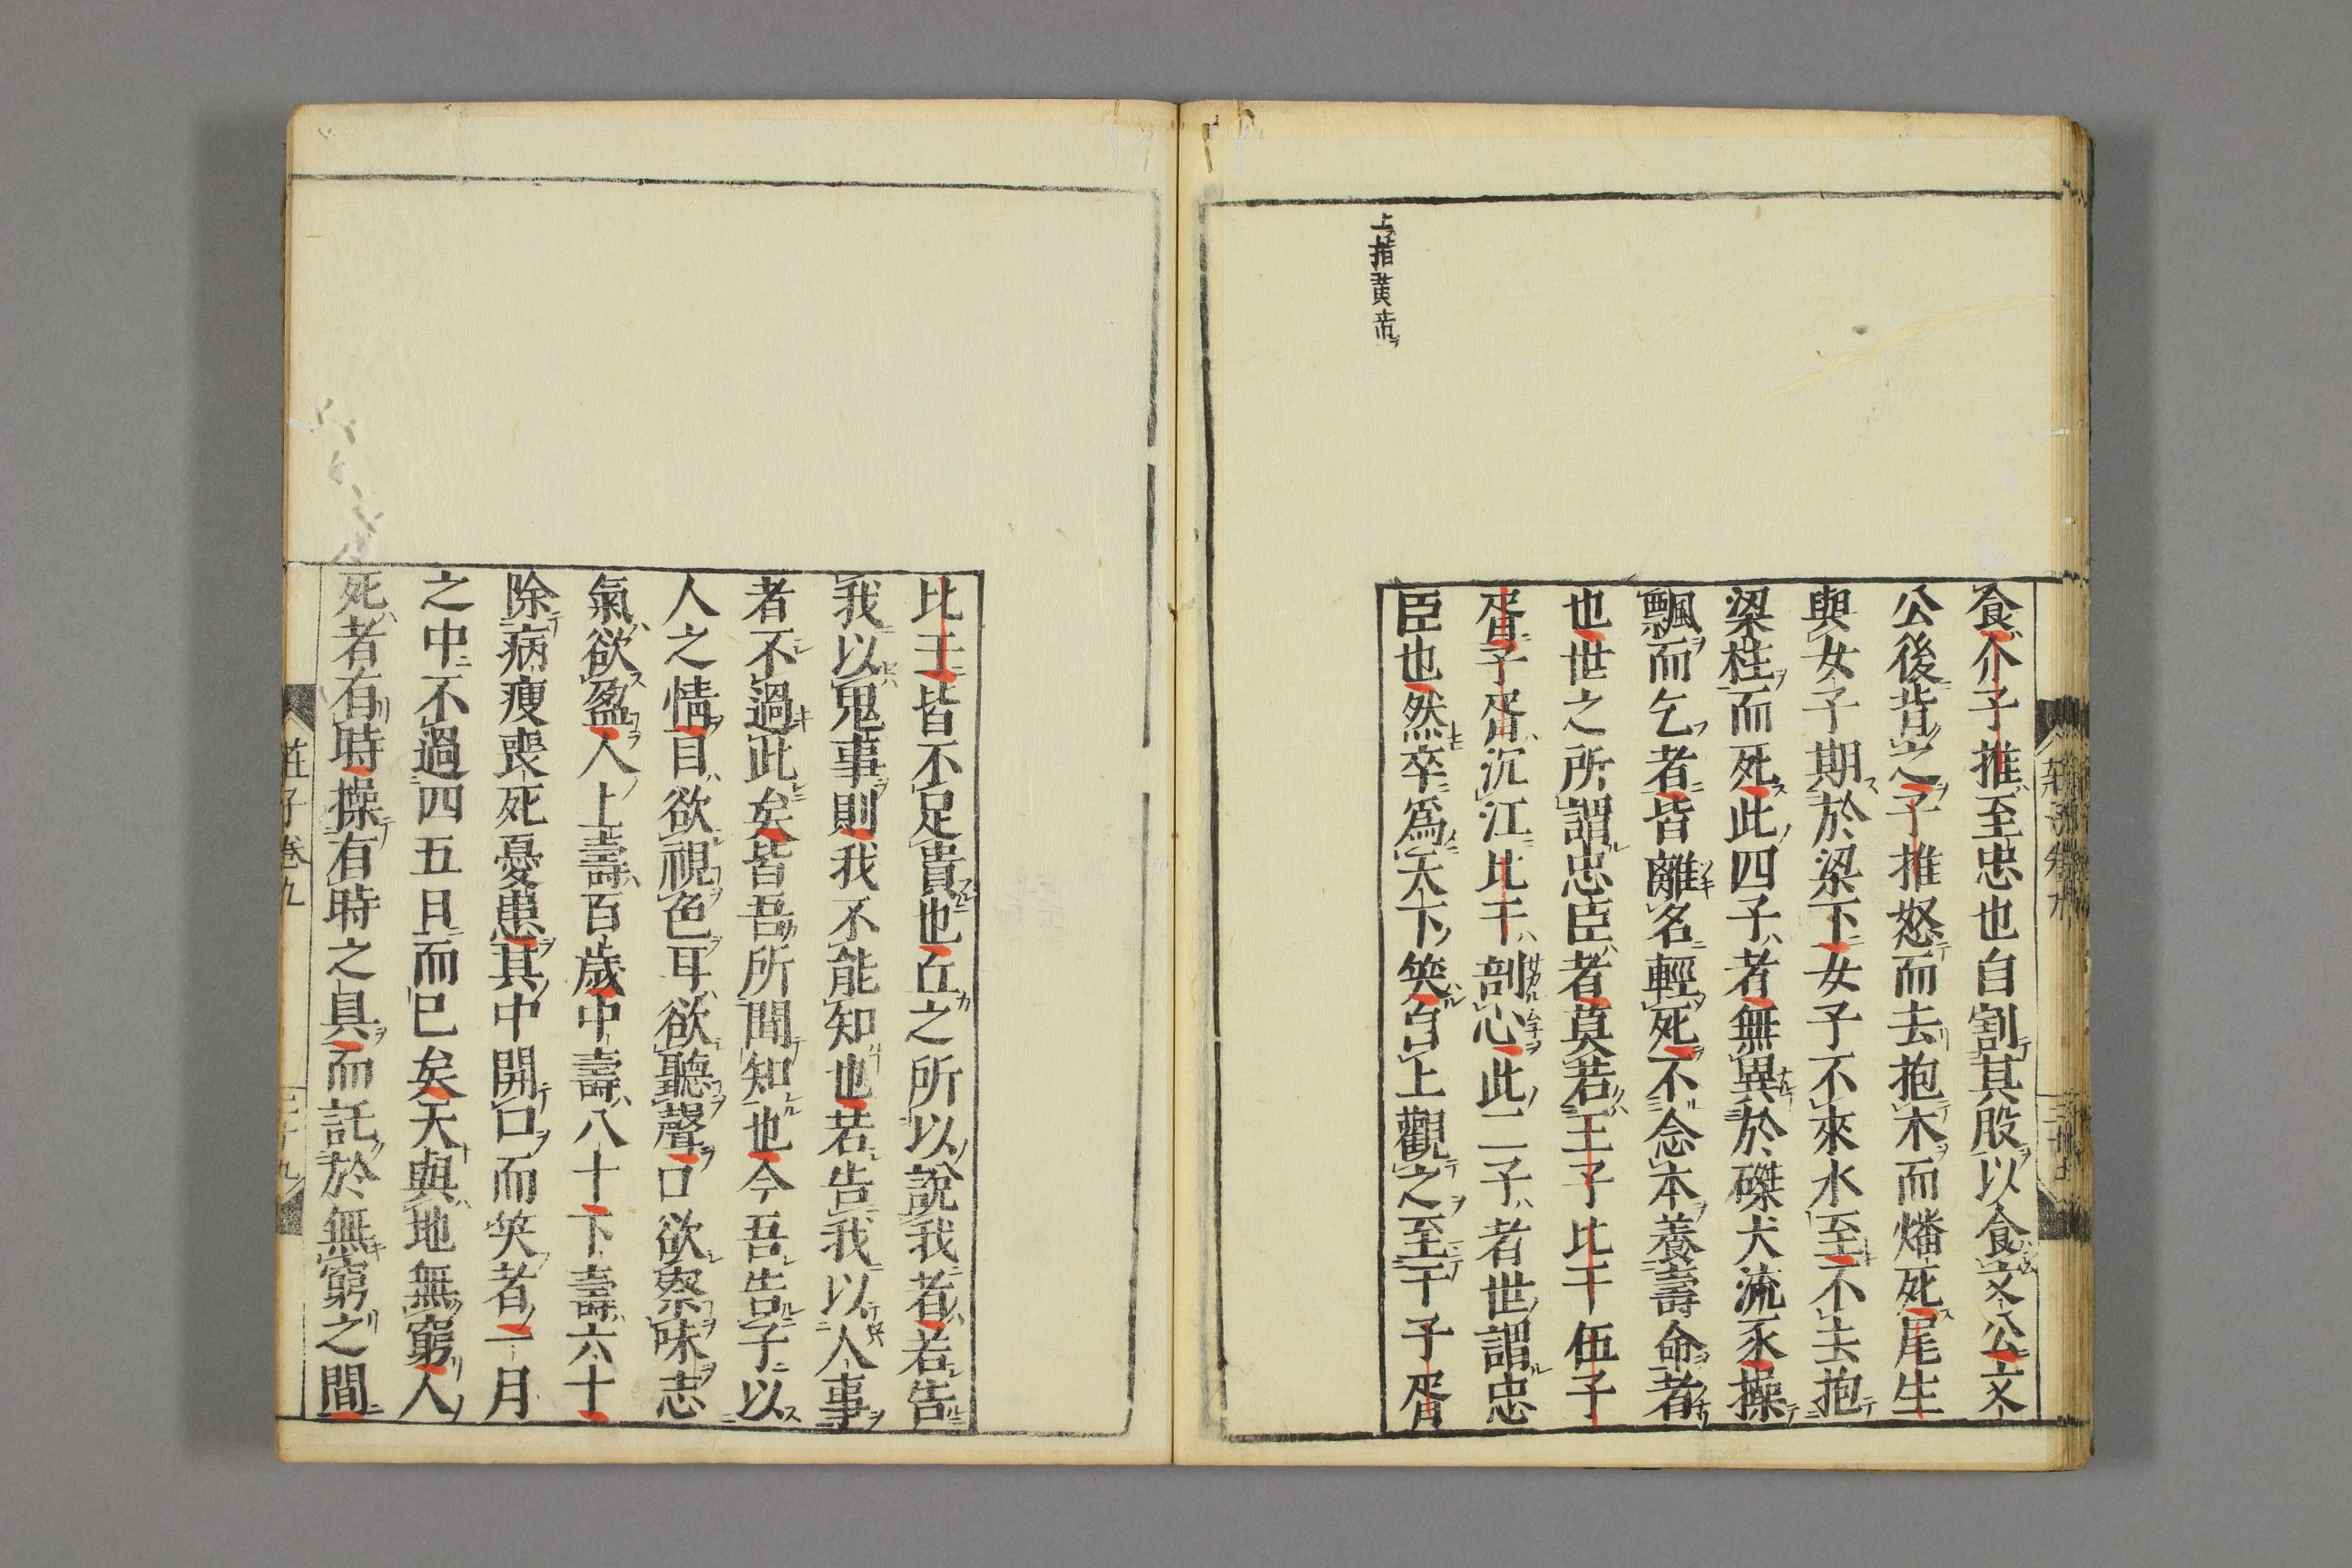 上指黄帝ヲ
食介子推至忠也自割其股以食文公文
公後背之子推怒而去抱木而燔死尾生
與女子期於梁下女子不來水至不去抱
梁柱而死此四子者無異於磔犬流豕操
瓢而乞者皆離名輕死不念本養壽命者
也世之所謂忠臣者莫若王子比干伍子
胥子胥沉江比干剖心此二子者世謂忠
臣也然卒爲天下笑自上觀之至于子胥
比干皆不足貴也丘之所以說我者若告
我以鬼事則我不能知也若告我以人事
者不過此矣皆吾所聞知也今吾告子以
人之情目欲視色耳欲聽聲口欲察味志
氣欲盈人上壽百歲中壽八十下壽六十
除病瘦喪死憂患其中開口而笑者一月
之中不過四五日而已矣天與地無窮人
死者有時操有時之具而託於無窮之間
莊子卷九
三十九